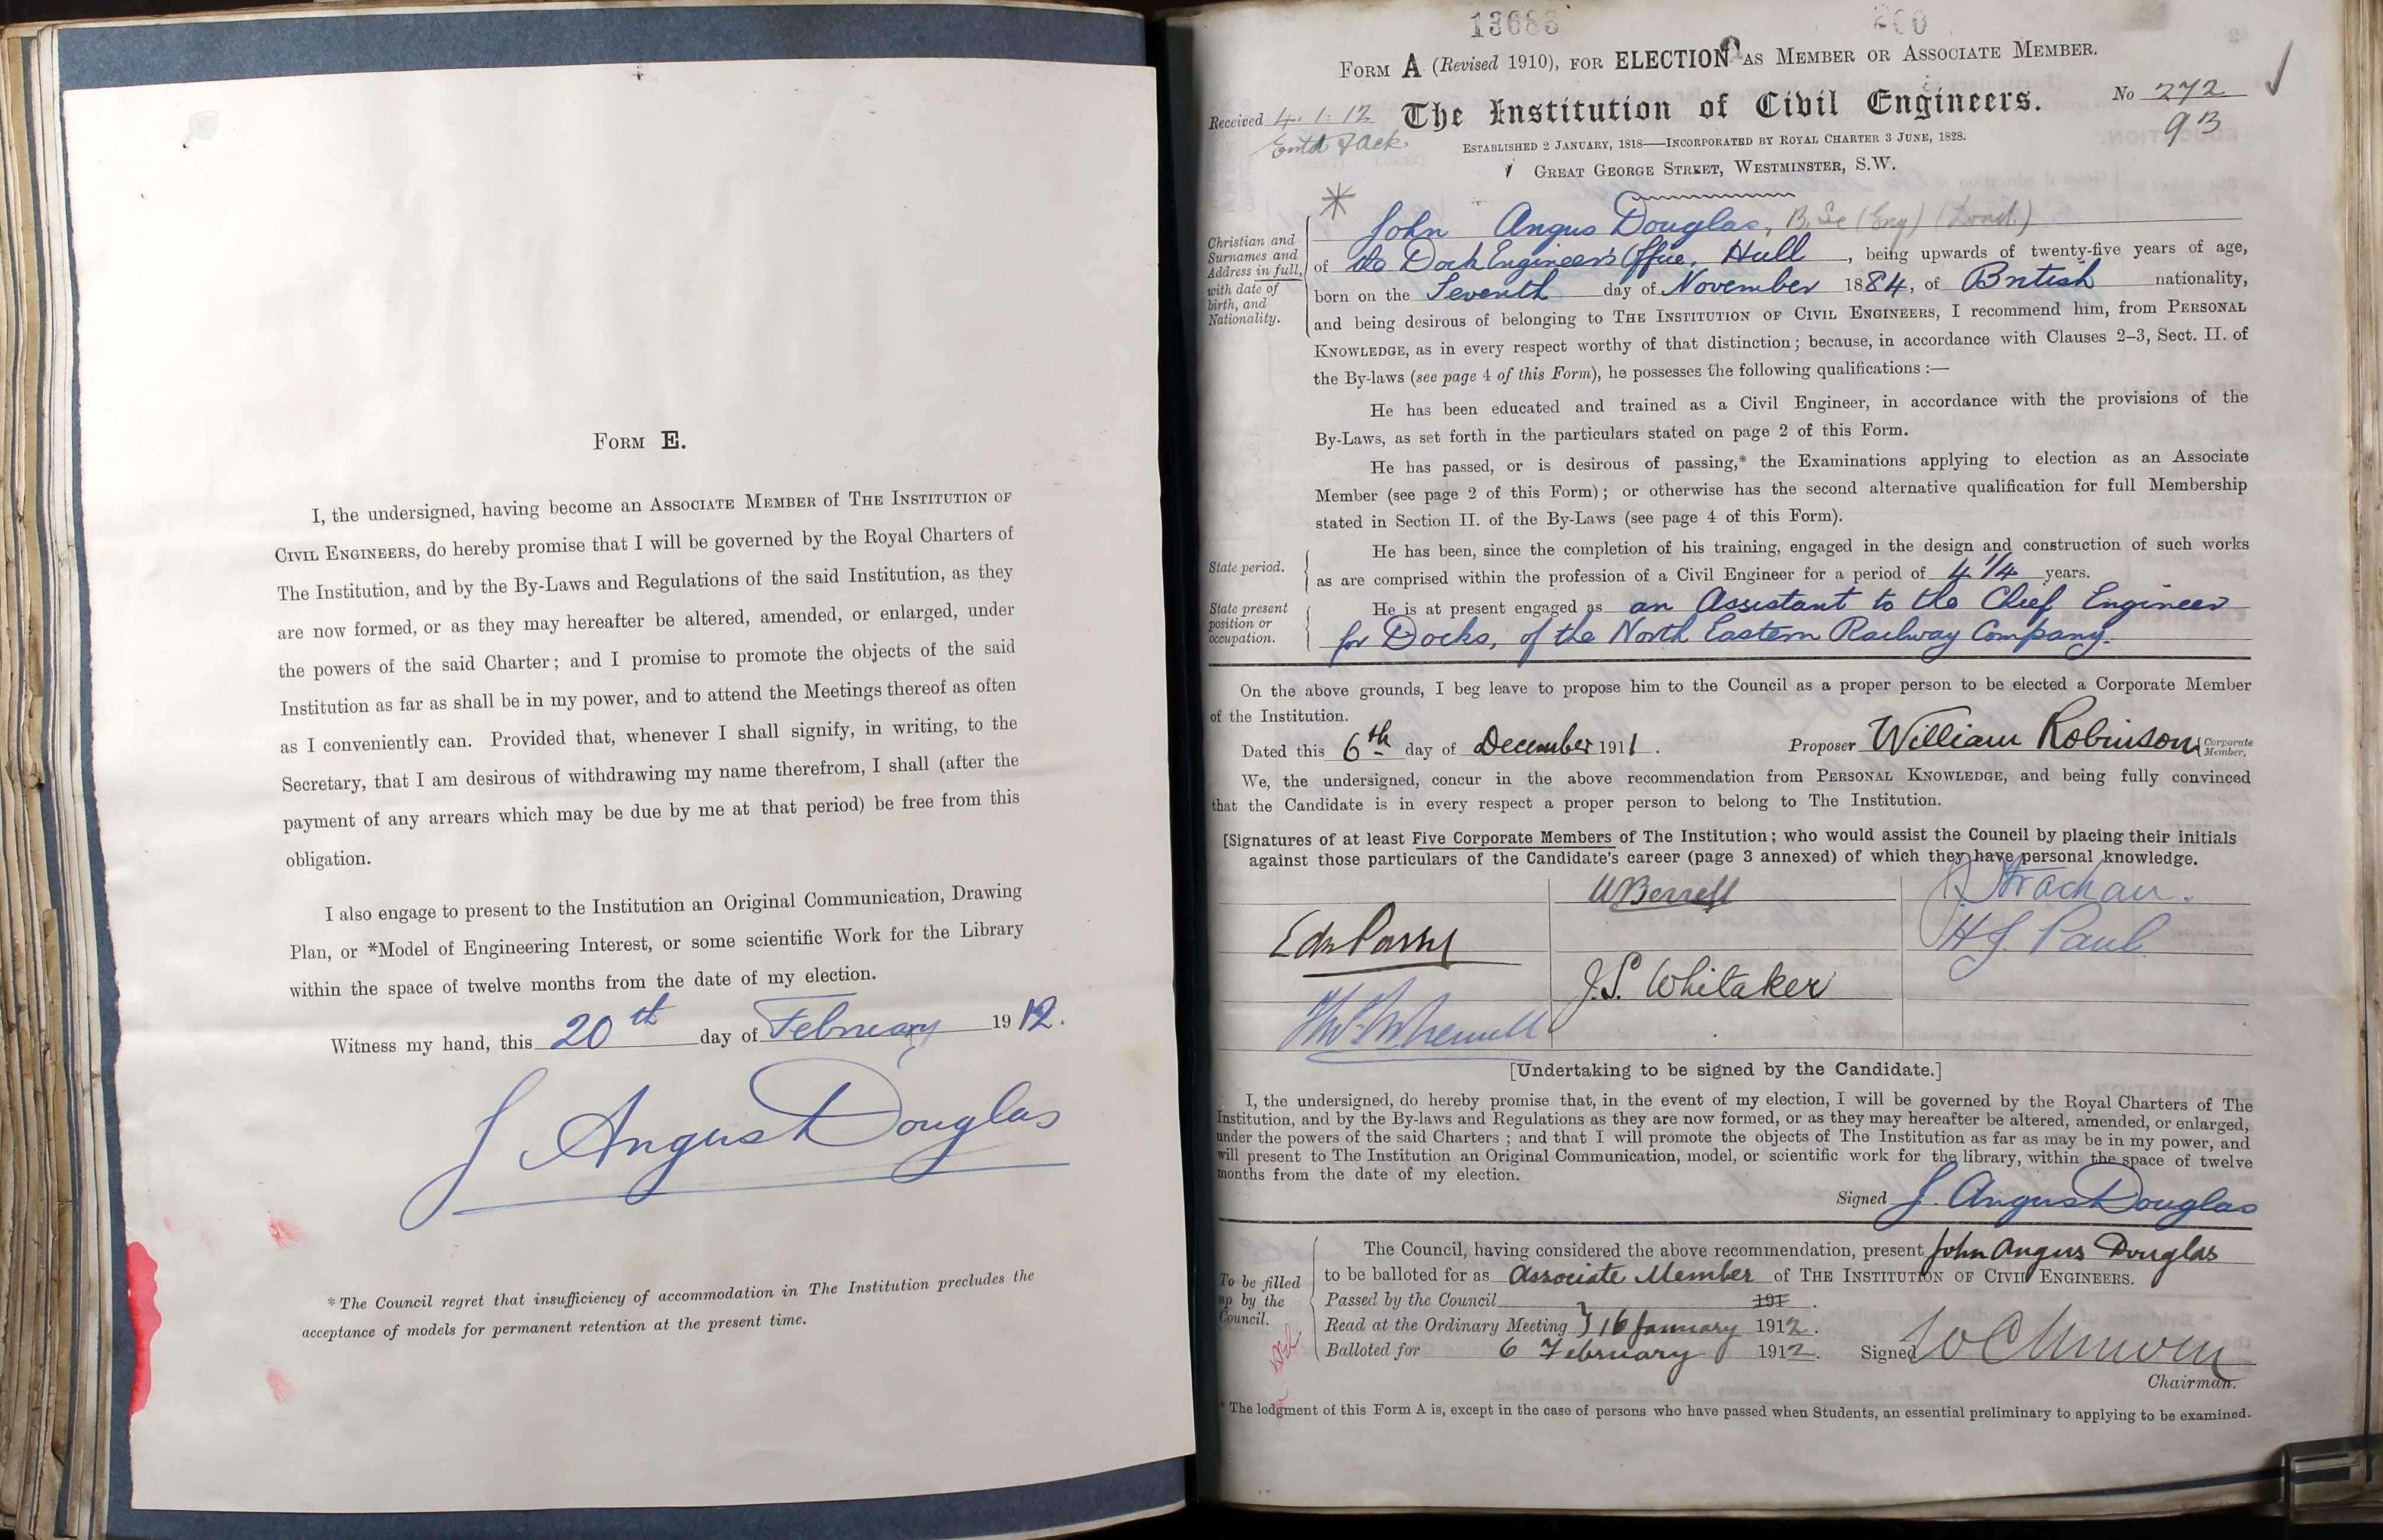 Form E.
I, the undersigned, having become an Associate Member of The Institution of
Civil Engineers, do hereby promise that I will be governed by the Royal Charters of
The Institution, and by the By-Laws and Regulations of the said Institution, as they
are now formed, or as they may hereafter be altered, amended, or enlarged, under
the powers of the said Charter; and I promise to promote the objects of the said
Institution as far as shall be in my power, and to attend the Meetings thereof as often
as I conveniently can. Provided that, whenever I shall signify, in writing, to the
Secretary, that I am desirous of withdrawing my name therefrom, I shall (after the
payment of any arrears which may be due by me at that period) be free from this
obligation.
I also engage to present to the Institution an Original Communication, Drawing
Plan, or *Model of Engineering Interest, or some scientific Work for the Library
within the space of twelve months from the date of my election.
Witness my hand, this 20th day of February 1912.
J Angus Douglas
*The Council regret that insufficiency of accommodation in The Institution precludes the
acceptance of models for permanent retention at the present time.
13683 200
Form A (Revised 1910), for ELECTION as Member or Associate Member.
Received 4.1.12 The Institution of Civil Engineers. No 272
93
Established 2 January, 1818—Incorporated by Royal Charter 3 June, 1828.
Great George Street, Westminster, S.W.
Christian and Surnames and Address in full, with date of birth, and Nationality.
John Angus Douglas, B.Sc (Eng) (Lond.)
of the Dock Engineer's Office, Hull, being upwards of twenty-five years of age,
born on the Seventh day of November 1884, of British nationality,
and being desirous of belonging to The Institution of Civil Engineers, I recommend him, from Personal
Knowledge, as in every respect worthy of that distinction; because, in accordance with Clauses 2–3, Sect. II. of
the By-laws (see page 4 of this Form), he possesses the following qualifications :—
He has been educated and trained as a Civil Engineer, in accordance with the provisions of the
By-Laws, as set forth in the particulars stated on page 2 of this Form.
He has passed, or is desirous of passing,* the Examinations applying to election as an Associate
Member (see page 2 of this Form); or otherwise has the second alternative qualification for full Membership
stated in Section II. of the By-Laws (see page 4 of this Form).
State period.
He has been, since the completion of his training, engaged in the design and construction of such works
as are comprised within the profession of a Civil Engineer for a period of 4 1/4 years.
State present position or occupation.
He is at present engaged as an Assistant to the Chief Engineer
for Docks, of the North Eastern Railway Company.
On the above grounds, I beg leave to propose him to the Council as a proper person to be elected a Corporate Member
of the Institution.
Dated this 6th day of December 1911. Proposer William Robinson { Corporate Member.
We, the undersigned, concur in the above recommendation from Personal Knowledge, and being fully convinced
that the Candidate is in every respect a proper person to belong to The Institution.
[Signatures of at least Five Corporate Members of The Institution; who would assist the Council by placing their initials
against those particulars of the Candidate's career (page 3 annexed) of which they have personal knowledge.
W Berrell
J Strachan.
H J. Paul
J.S. Whitaker
[Undertaking to be signed by the Candidate.]
I, the undersigned, do hereby promise that, in the event of my election, I will be governed by the Royal Charters of The
Institution, and by the By-laws and Regulations as they are now formed, or as they may hereafter be altered, amended, or enlarged,
under the powers of the said Charters ; and that I will promote the objects of The Institution as far as may be in my power, and
will present to The Institution an Original Communication, model, or scientific work for the library, within the space of twelve
months from the date of my election.
Signed J. Angus Douglas
To be filled up by the Council.
The Council, having considered the above recommendation, present John Angus Douglas
to be balloted for as Associate Member of The Institution of Civil Engineers.
Passed by the Council 191 .
Read at the Ordinary Meeting } 16 January 1912.
Balloted for 6 February 1912. Signed W C Unwin
Chairman.
* The lodgment of this Form A is, except in the case of persons who have passed when Students, an essential preliminary to applying to be examined.